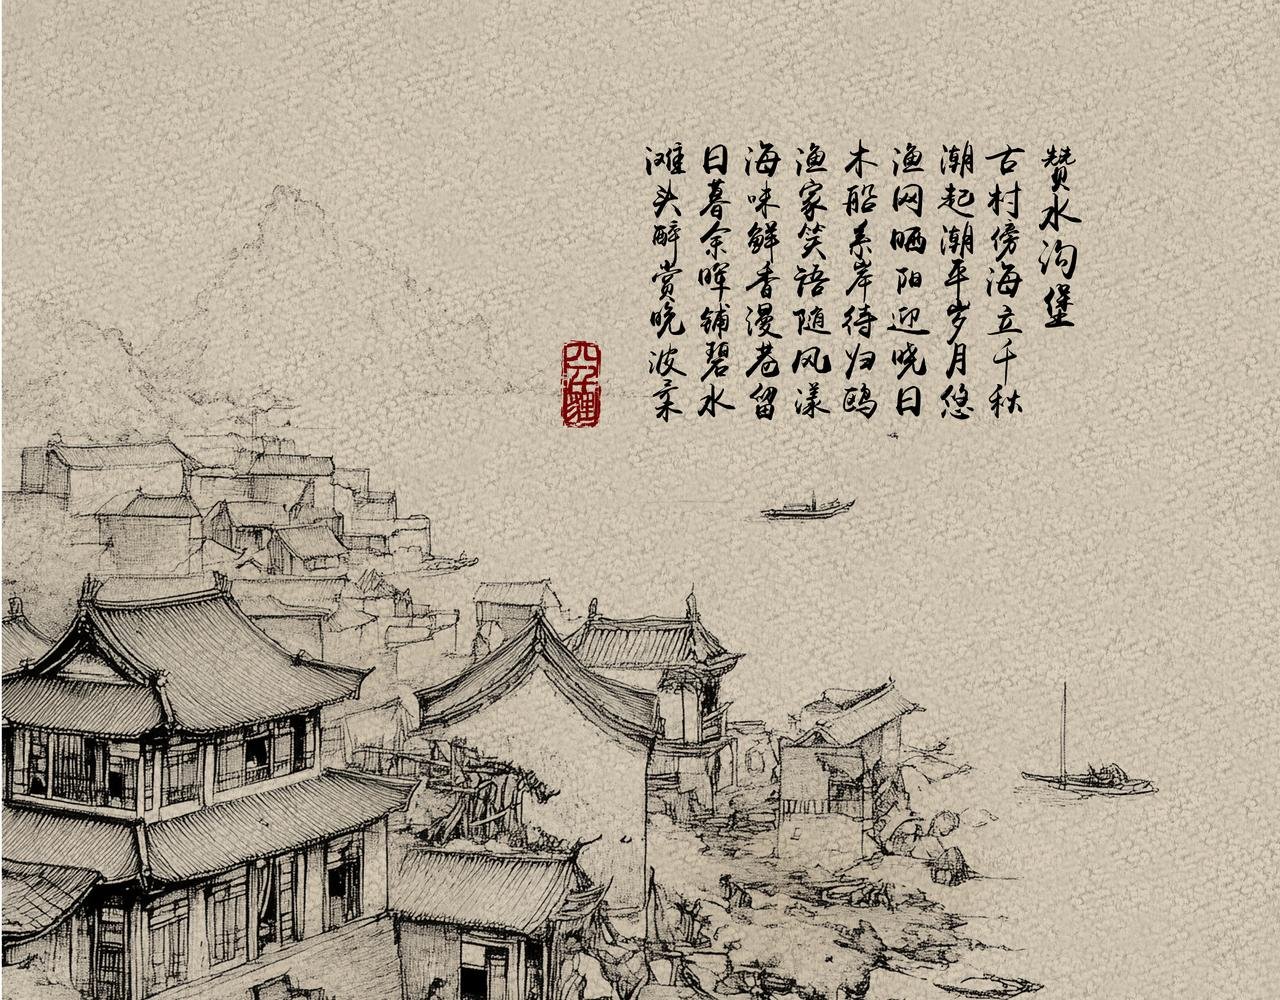 赞水沟堡
古村傍海立千秋
潮起潮平岁月悠
渔网晒阳迎晓日
木船系岸待归鸥
渔家笑语随风漾
海味鲜香漫巷留
日暮余晖铺碧水
滩头醉赏晚波柔